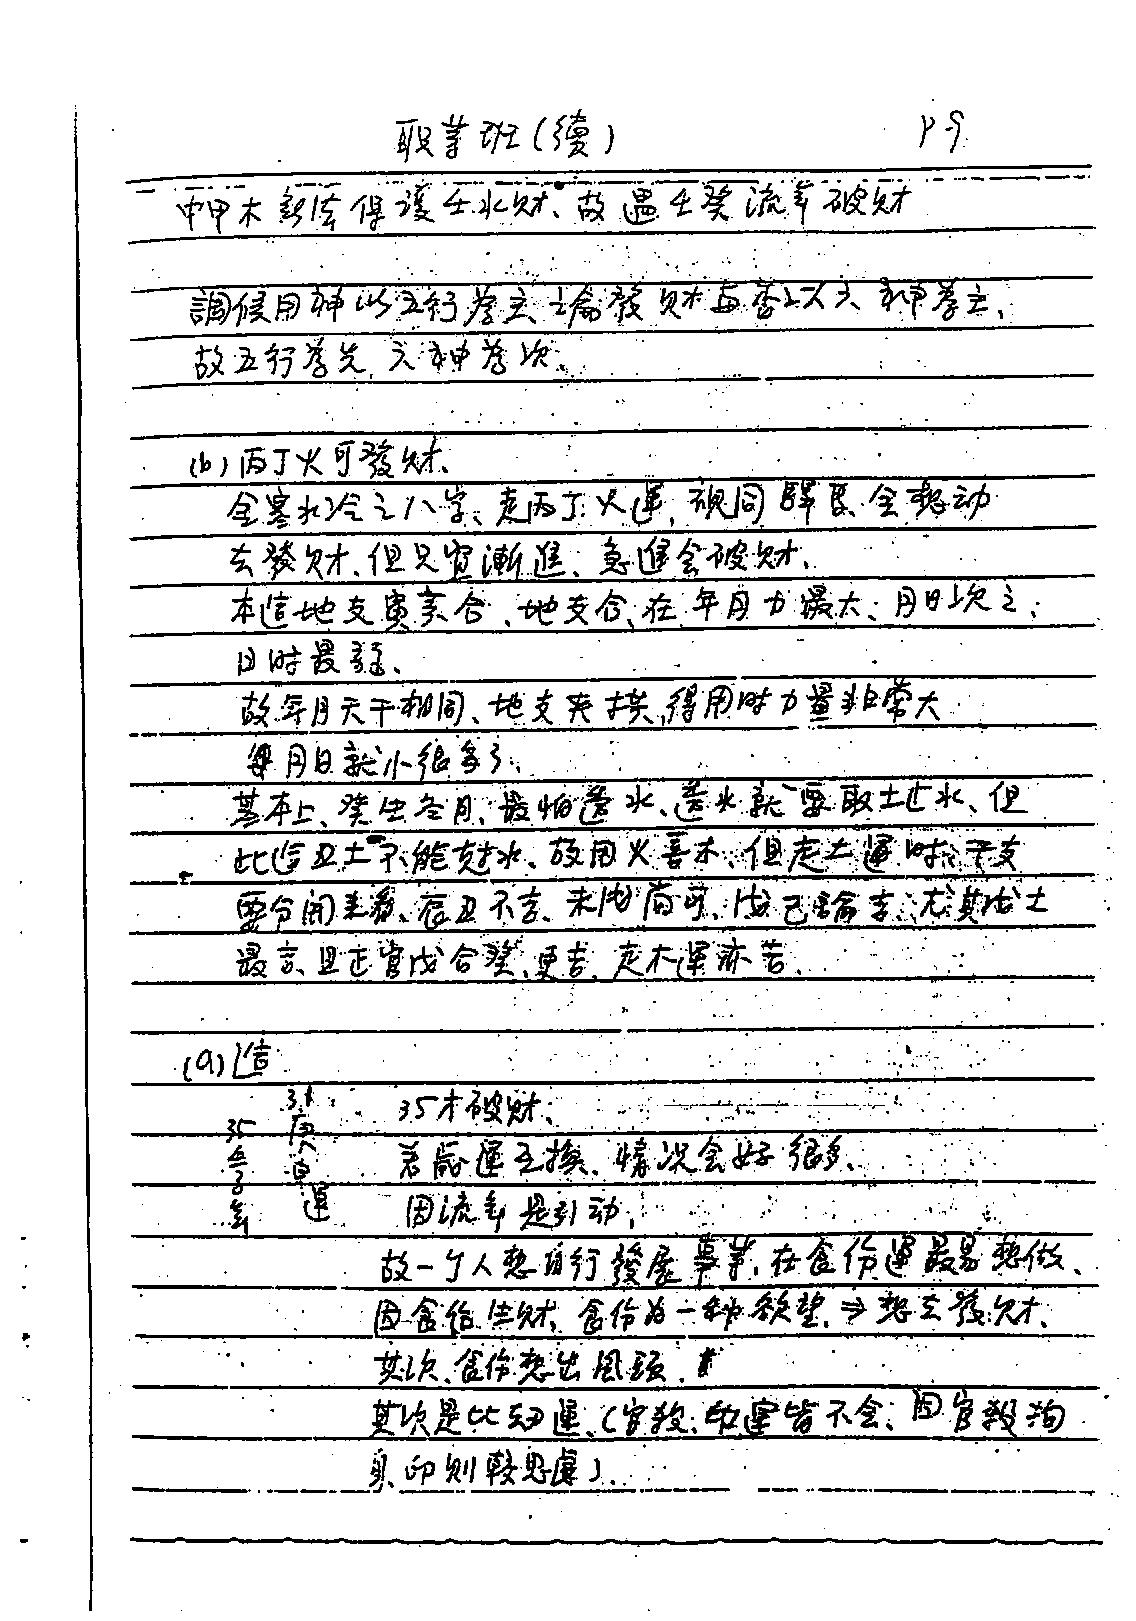 职業班(續) P.9
中甲木無法保護壬水財、故遇壬癸流年破財
調候用神以五行為主、論發財與否以六神為主、
故五行為先、六神為次、
(b)丙丁火可發財、
金寒水冷之八字、走丙丁火運、視同驛馬、会想动
去發财、但只宜漸進、急進会破财、
本造地支寅亥合、地支合、在年月力最大、月日次之、
日时最弱、
故年月天干相同、地支夾拱、得用时力量非常大
月日就小很多了、
基本上、癸生冬月、最怕透水、透水就要取土止水、但
此造丑土不能剋水、故用火喜木、但走土運时、干支
要分開來看、辰丑不吉、未戌尚可、戊己論吉、尤其戊土
最吉、且正官戊合癸、更吉、走木運亦吉、
(a)造
31庚申運
35
35才破财、
若歲運互换、情况会好很多、
因流年是引动、
故一个人想自行發展事業、在食伤運最易想做、
因食伤生财、食伤为一种欲望、⇒想去發财、
其次、食伤想出風頭、
其次是比劫運、(官殺、印運皆不会、因官殺拘
身、印则較思慮)、